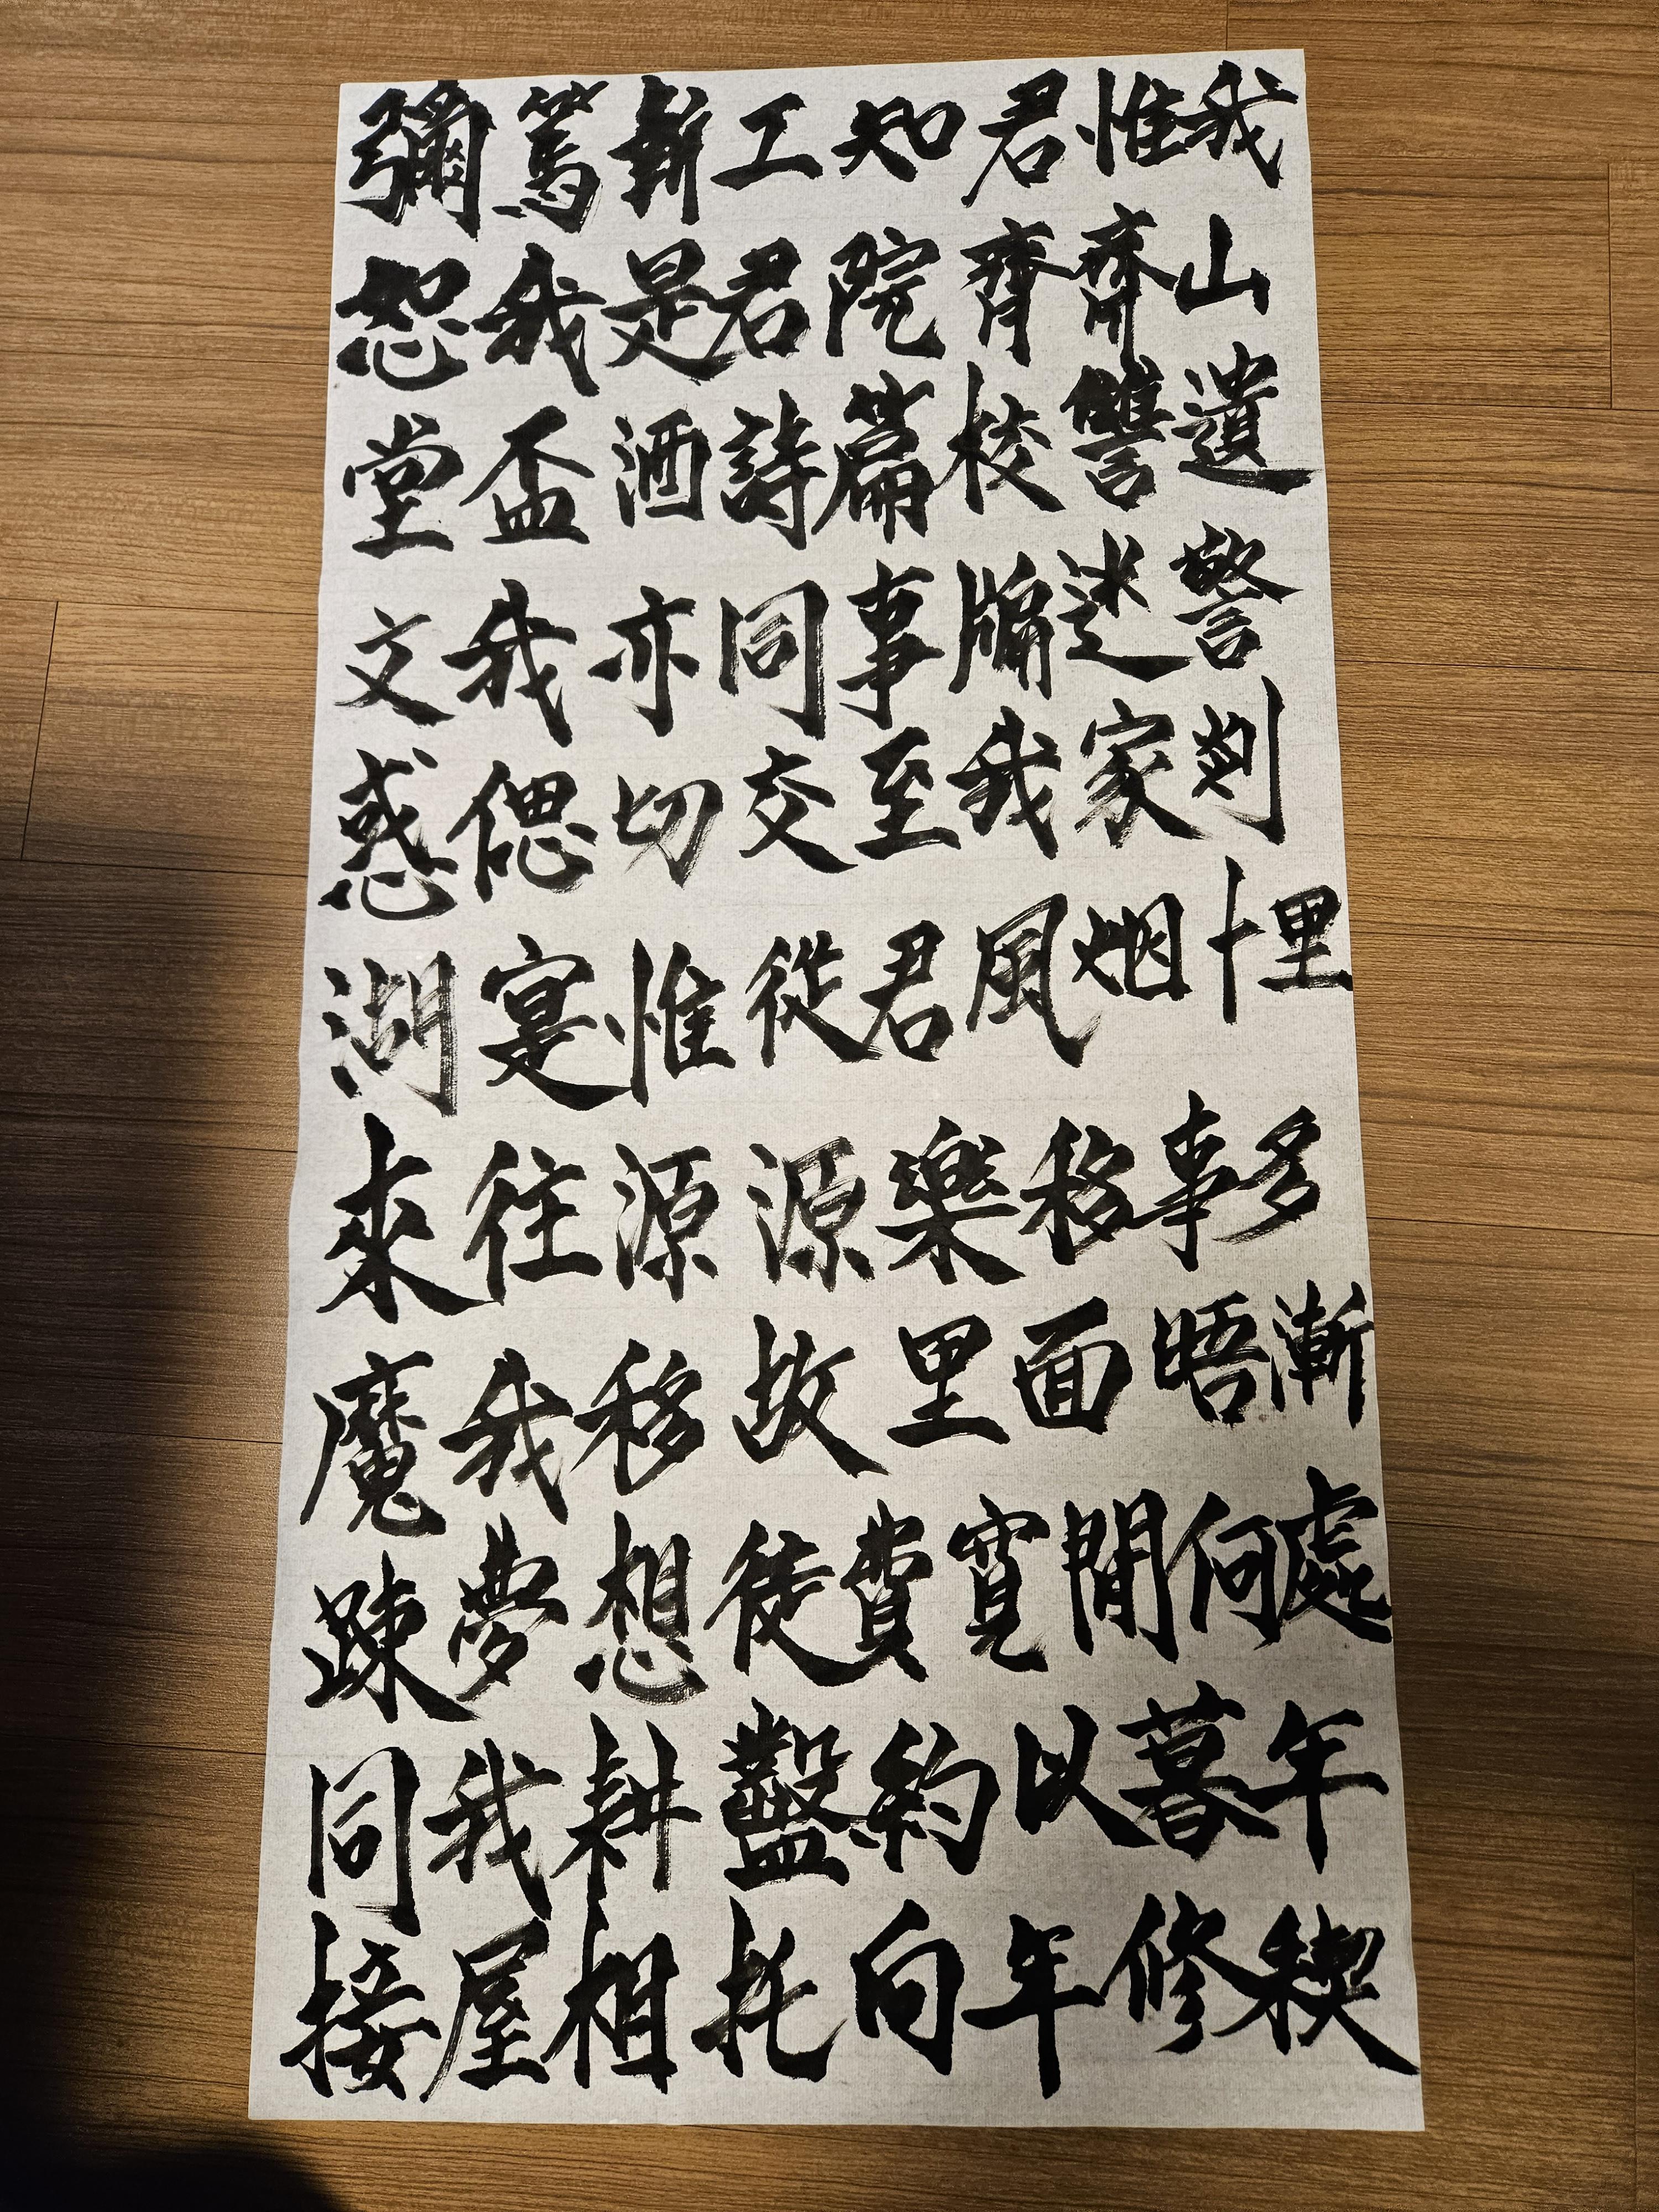 彌篤斬工知君惟我
恕我是君院齊齊山
堂盃酒詩篇校讐遺
文我亦同事牖迷警
惑偲切交至我家剡
湖宴惟從君風烟十里
來往源源樂移事多
魔我移故里面晤漸
踈夢想徒費寬閒何處
同我耕鑿約以暮年
接屋相托向年修稧